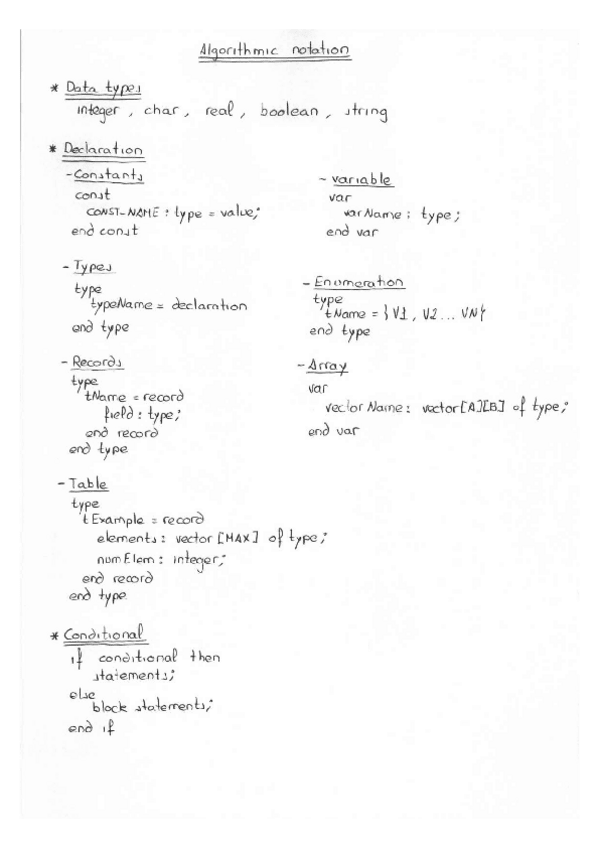 Algorithmic notation
* Data types
integer, char, real, boolean, string
* Declaration
- Constants
const
CONST_NAME : type = value;
end const
- variable
var
varName : type;
end var
- Types
type
typeName = declaration
end type
- Enumeration
type
tName = {V1, V2 ... VN}
end type
- Records
type
tName = record
field : type;
end record
end type
- Array
var
vectorName : vector[A][B] of type;
end var
- Table
type
tExample = record
elements : vector [MAX] of type;
numElem : integer;
end record
end type
* Conditional
if conditional then
statements;
else
block statements;
end if